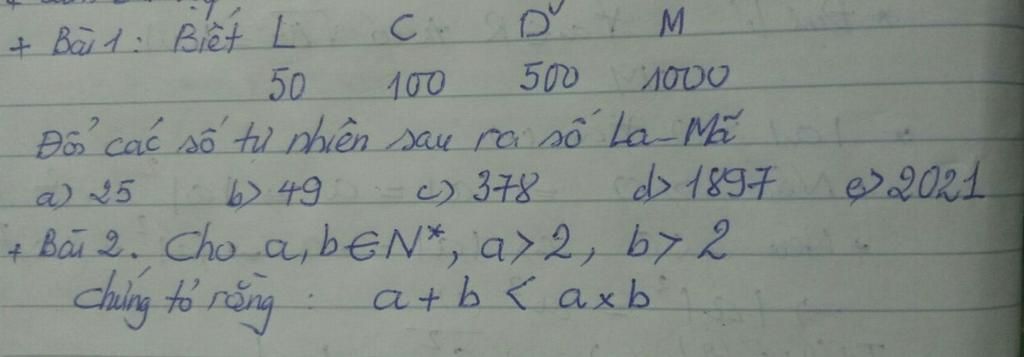 + Bài 1: Biết L C D M
50 100 500 1000
Đổi các số tự nhiên sau ra số La-Mã
a) 25 b) 49 c) 378 d) 1897 e) 2021
+ Bài 2. Cho a, b ∈ N*, a > 2, b > 2
Chứng tỏ rằng: a + b < a x b